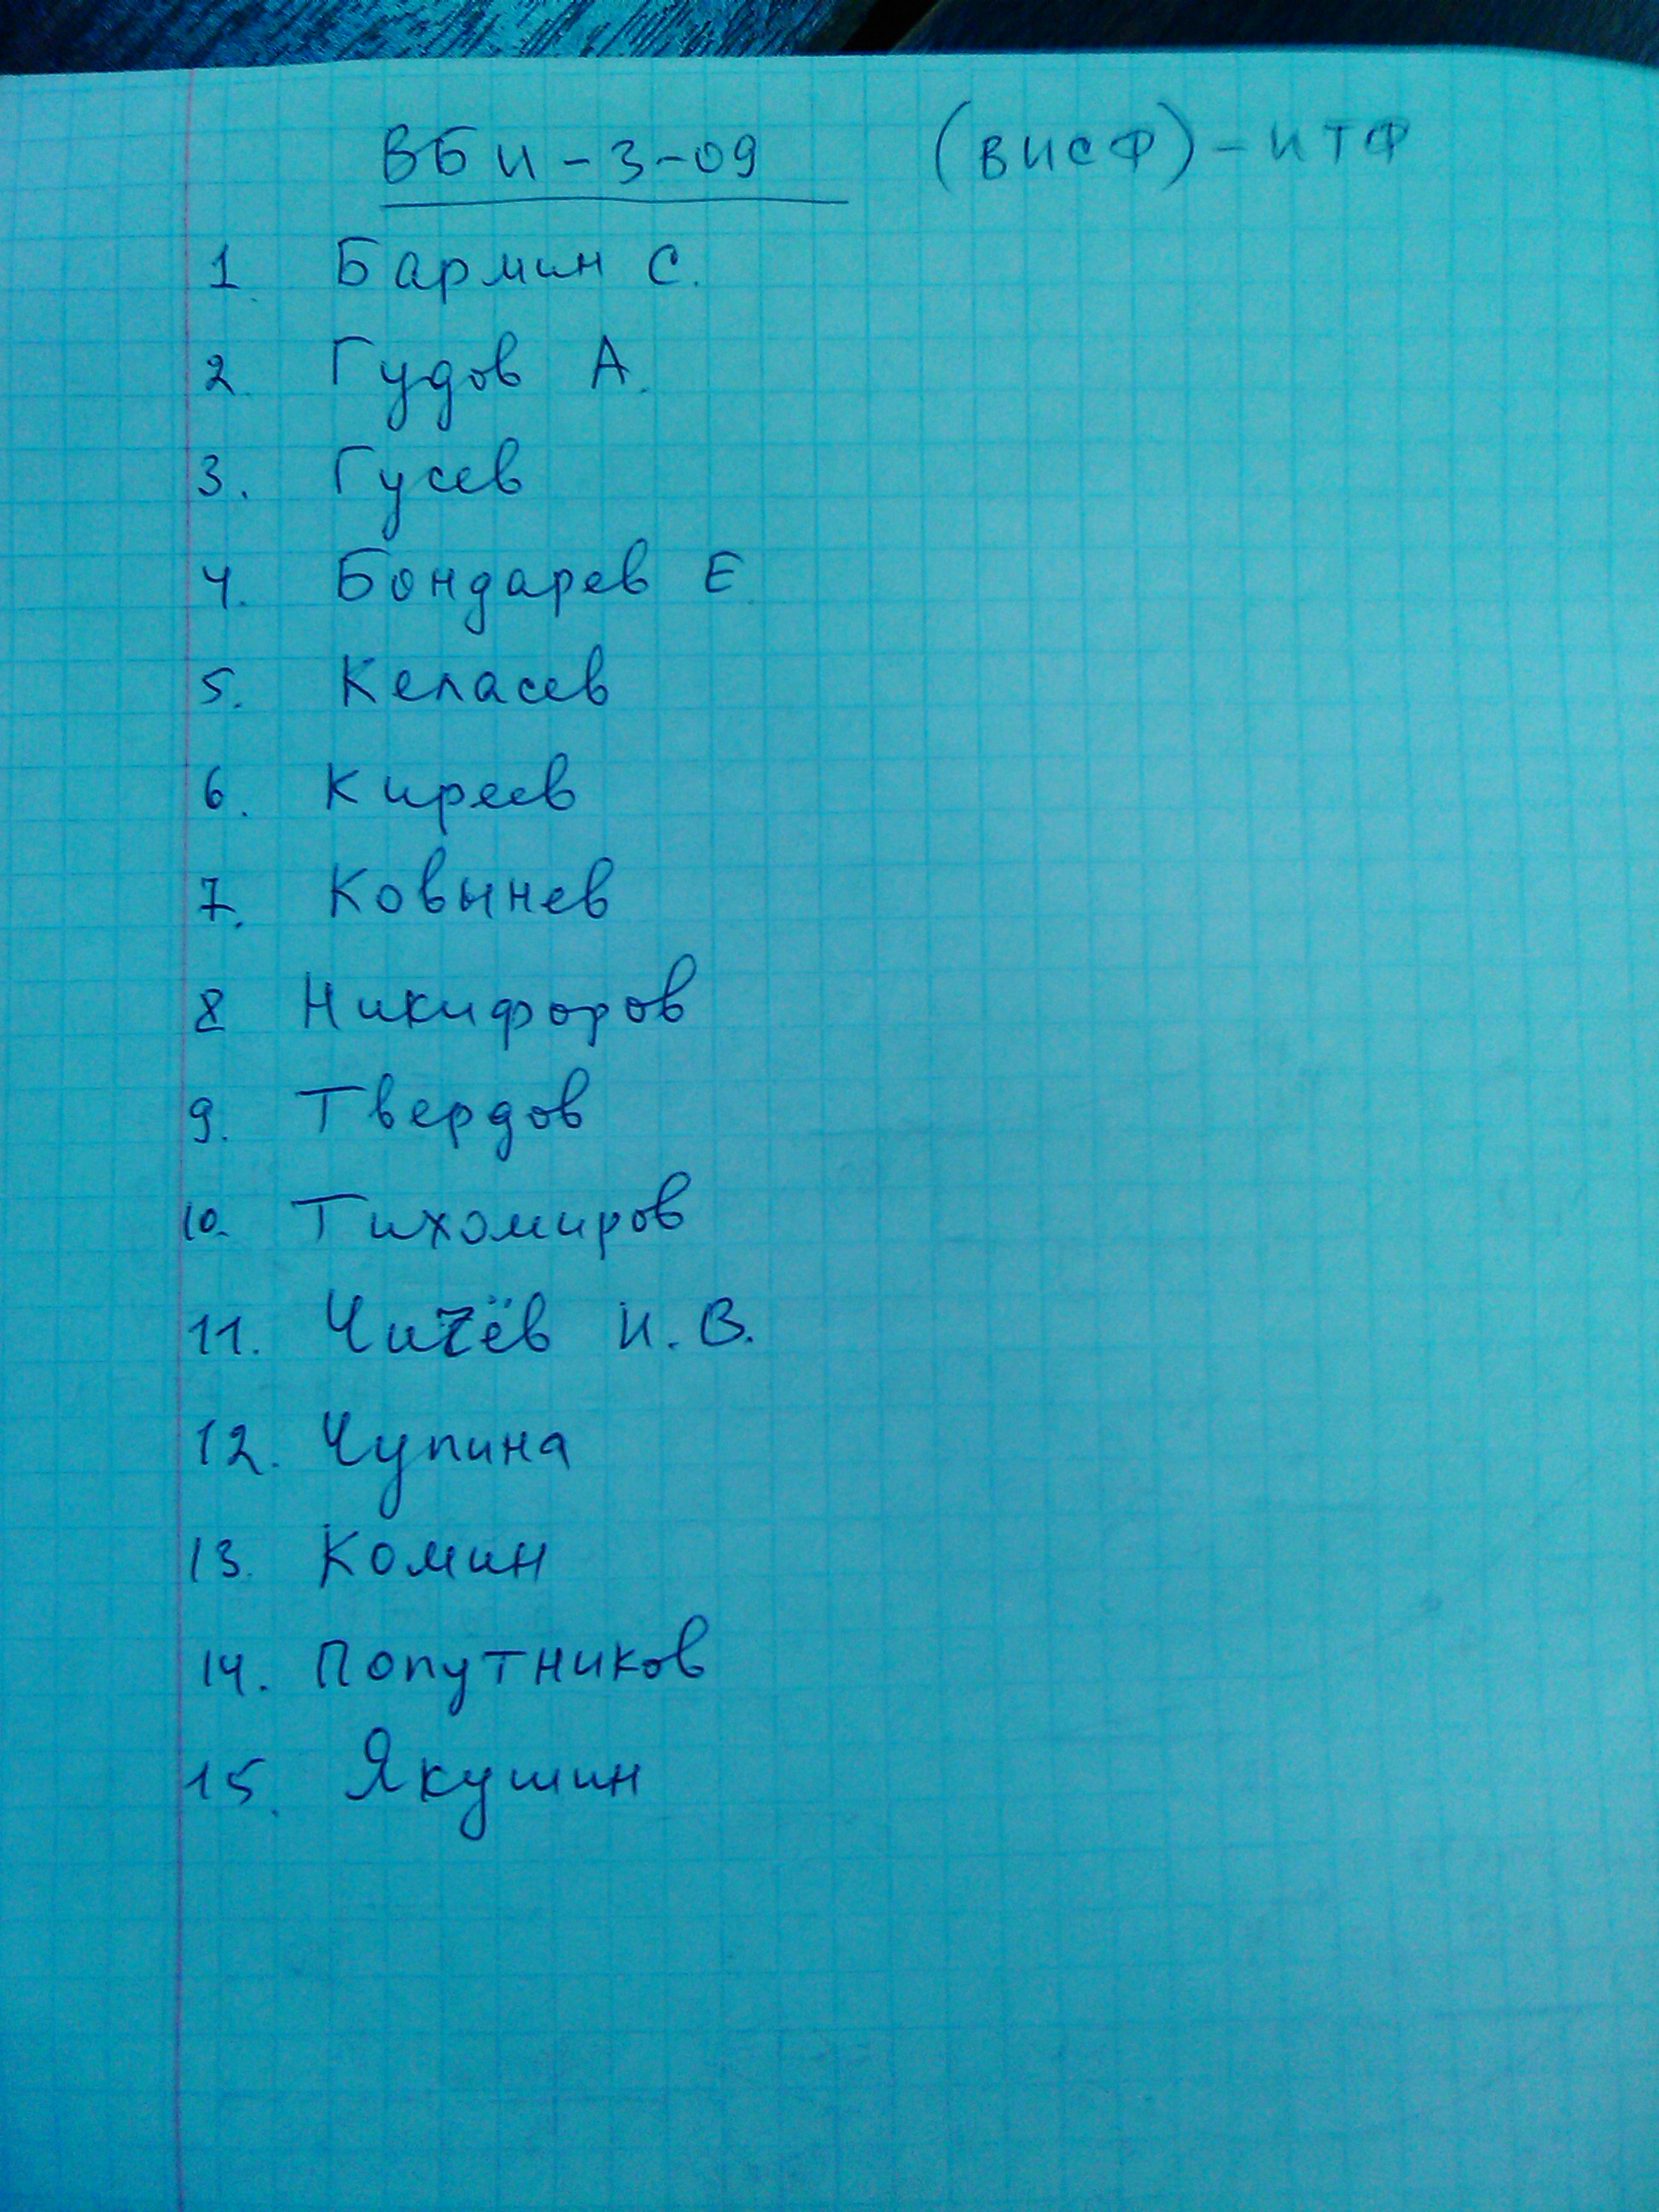 ВБИ-3-09 (ВИСФ)-ИТФ
1. Бармин С.
2. Гудов А.
3. Гусев
4. Бондарев Е.
5. Келасев
6. Киреев
7. Ковынев
8 Никифоров
9. Твердов
10. Тихомиров
11. Чичёв И.В.
12. Чупина
13. Комин
14. Попутников
15. Якушин